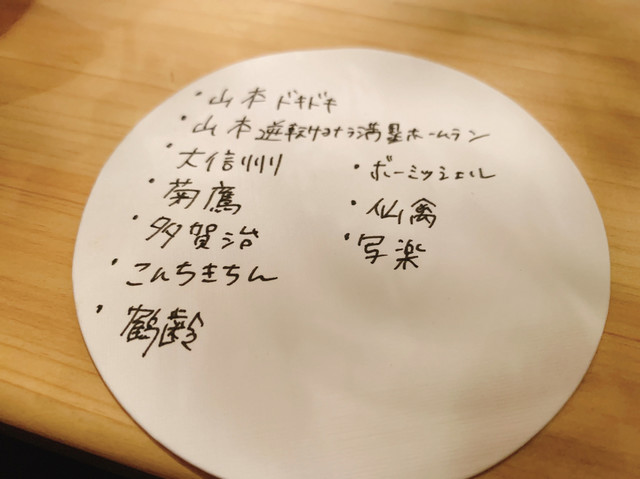 ・山本ドキドキ
・山本逆転サヨナラ満塁ホームラン
・大信州
・菊鷹
・多賀治
・こんちきちん
・鶴齢
・ボーミッシェル
・仙禽
・写楽